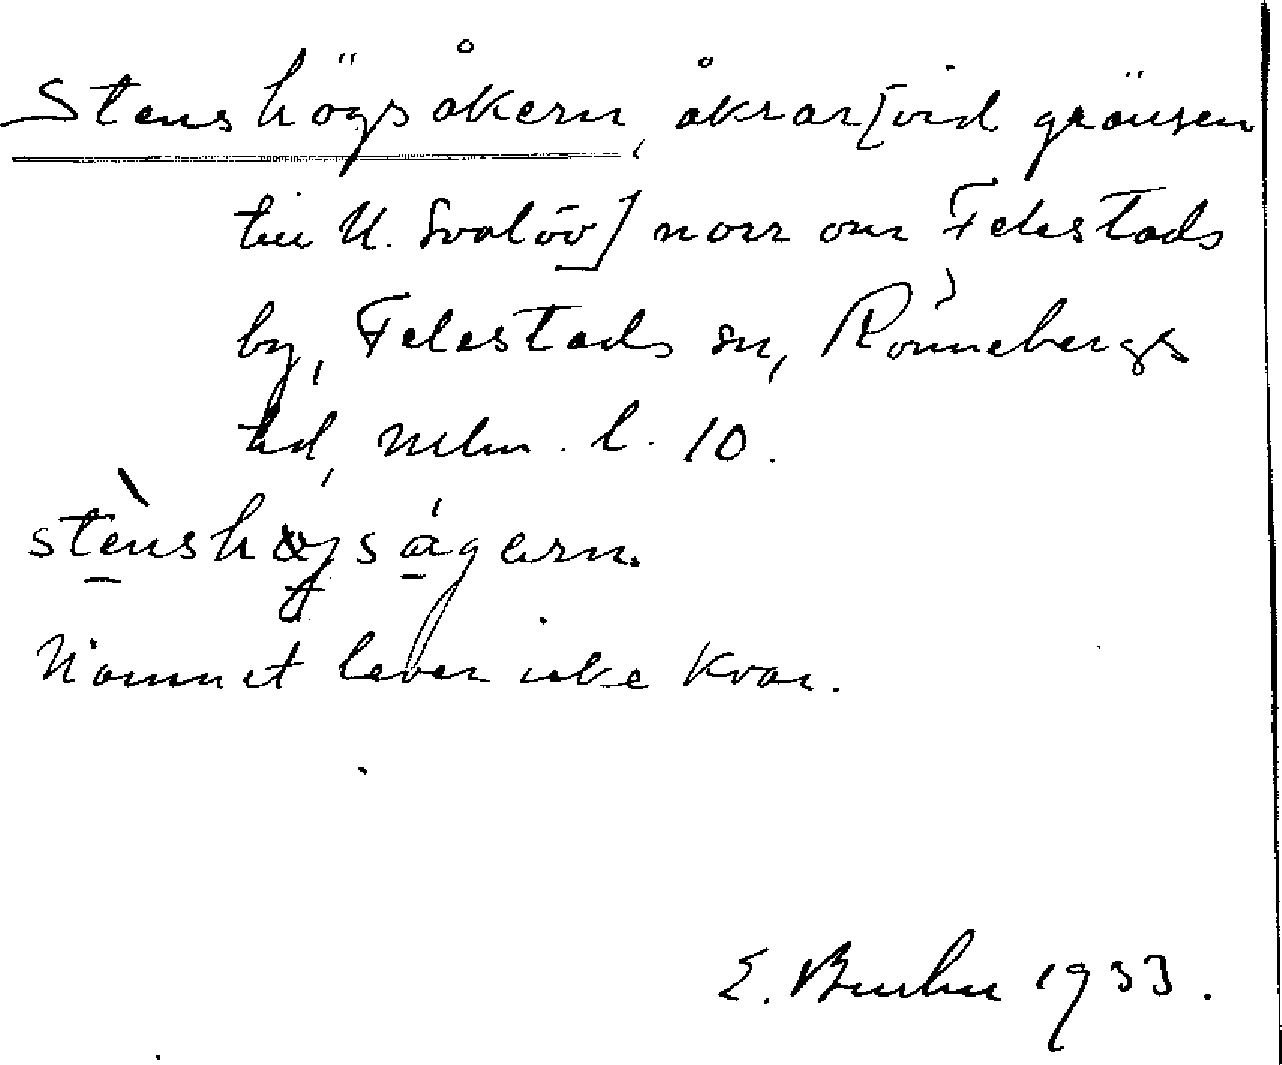 Stenshögsåkern, åkrar [vid gränsen
till N. Svalöv] norr om Felestads
by, Felestads sn, Rönnebergs
hd, Mlm. l. 10.
stènshøgságern.
Namnet lever icke kvar.
E. Bruhn 1933.